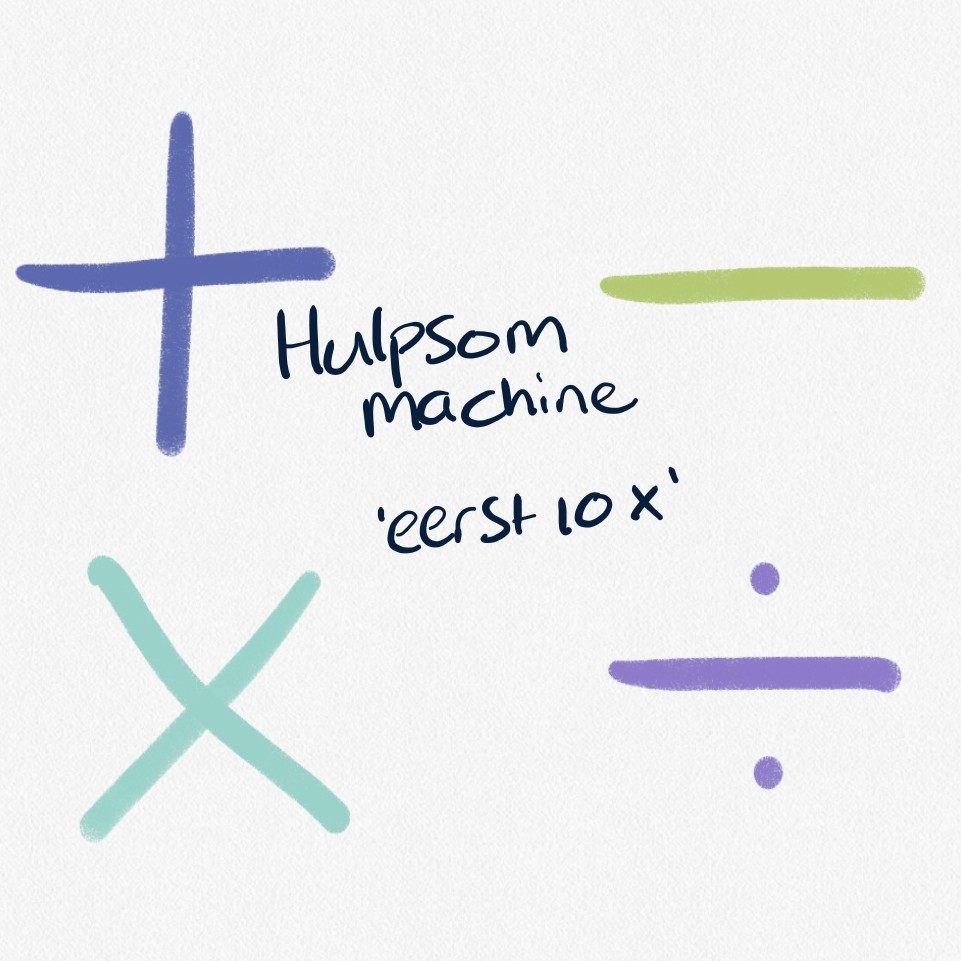 + −
Hulpsom
machine
'eerst 10 x'
× ÷